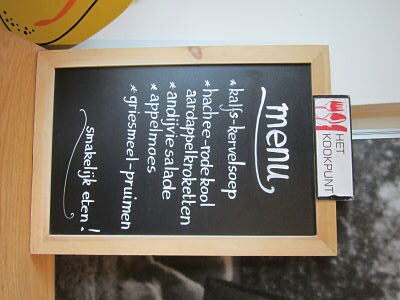 HET
KOOKPUNT
menu
* kalfs-kervelsoep
* hachee-rode kool
aardappelkroketten
* andijvie salade
* appelmoes
* griesmeel-pruimen
smakelijk eten!